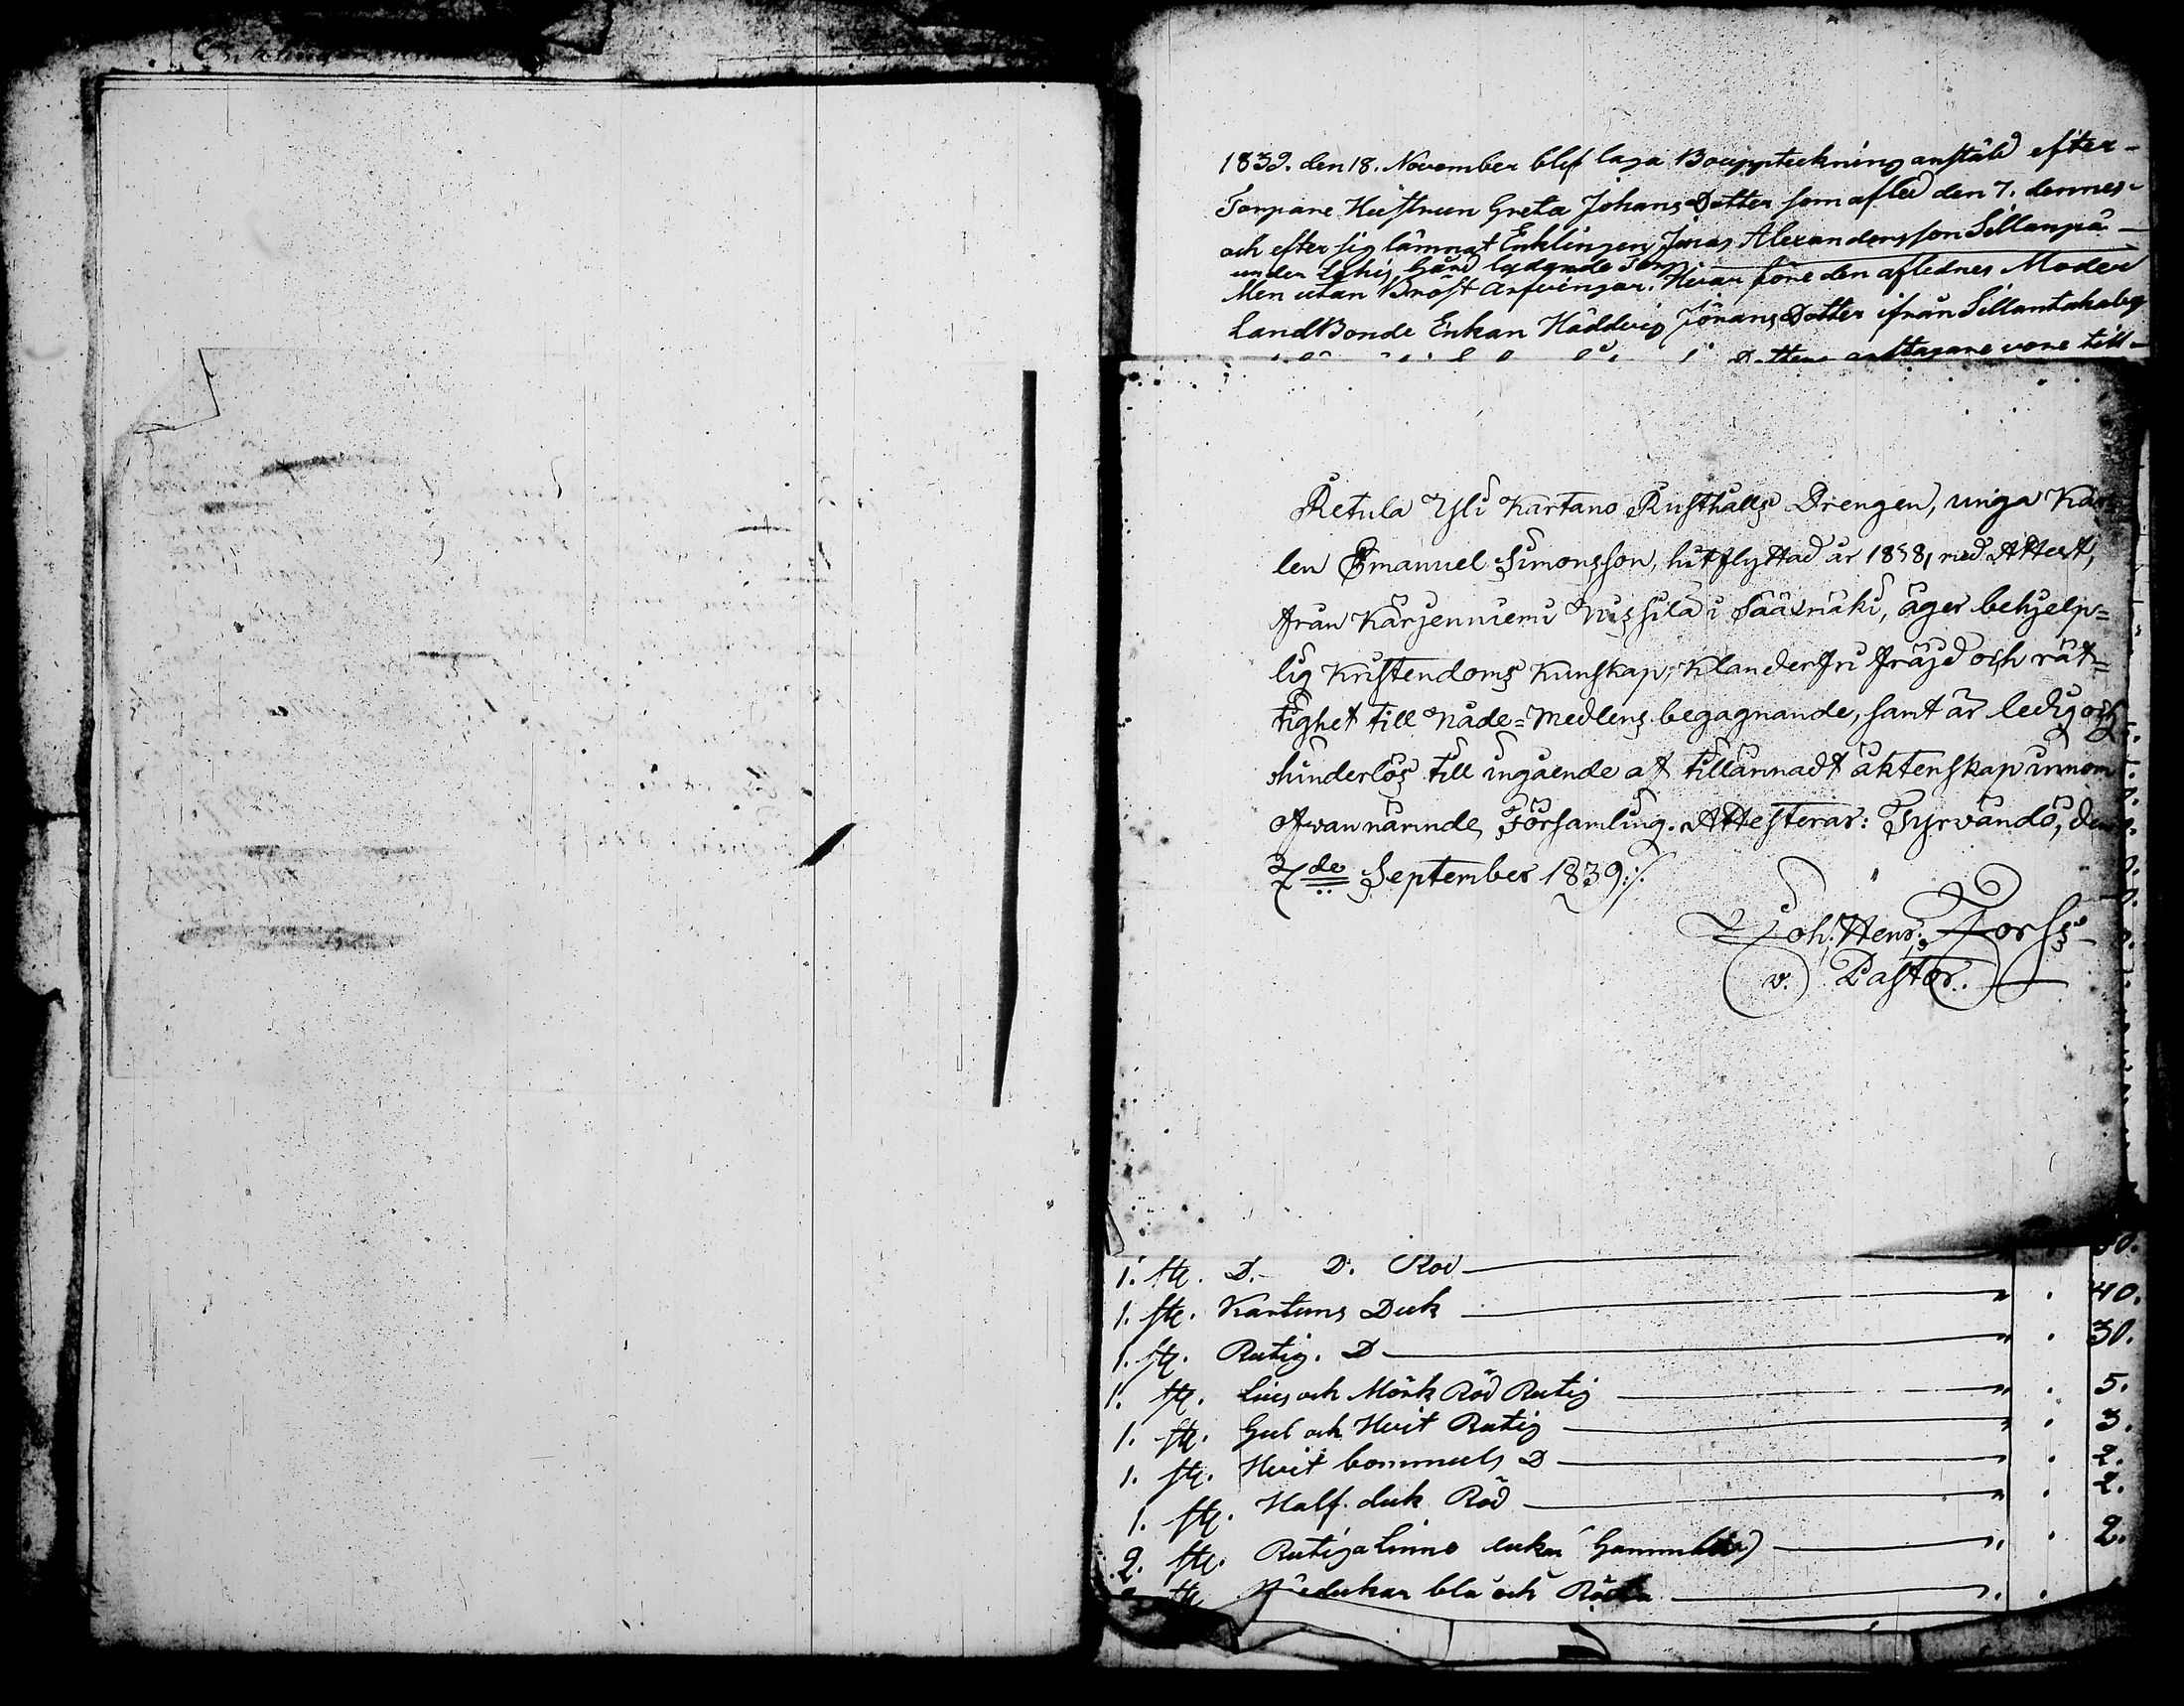 1839. den 18. November blef laga Bouppteckning anstäld efter-
Torpare Hustrun Greta Johans Dotter som afled den 7. dennes-
och efter sig lämnat Enklingen Jonas Alexandersson Sillanpä
under Lahis Gård lydande Torp
Men utan Bröst arfvingar. Hvar före den aflednes Moder
LandBonde Enkan Häddvig Jörans Dotter ifrån Sillantakaby
Dotters anttagare vore till-
Retula Yli Kartano Rusthålls Drengen, unga Kar-
len Emanuel Simonsson, hitflyttad år 1838, med Attest,
från Karjenniemi Nissilä i Sääxmäki, äger behjelp=
lig Kristendoms Kunskap, Klanderfri fräjd och rät=
tighet till Nåde=Medlens begagnande, samt är ledig och
hinderlös till ingående af tillärnadt äktenskap innom
ofvannämnde Församling. Attesterar: Tyrvändö, den
7de September 1839.
Joh. Henr. Forss
v. Pastor.
1. st. D. D. Röd 50.
1. st. Kartuns Duk 40.
1. st. Rutig. D 30.
1. st. Lius och Mörk Röd Rutig 5.
1. st. Gul och Hvit Rutig 3.
1. st. Hvit bommuls D 2.
1. st. Half duk Röd 2.
2. st. Rutiga Linne dukar Gammla 2.
st dukar blå och Röda